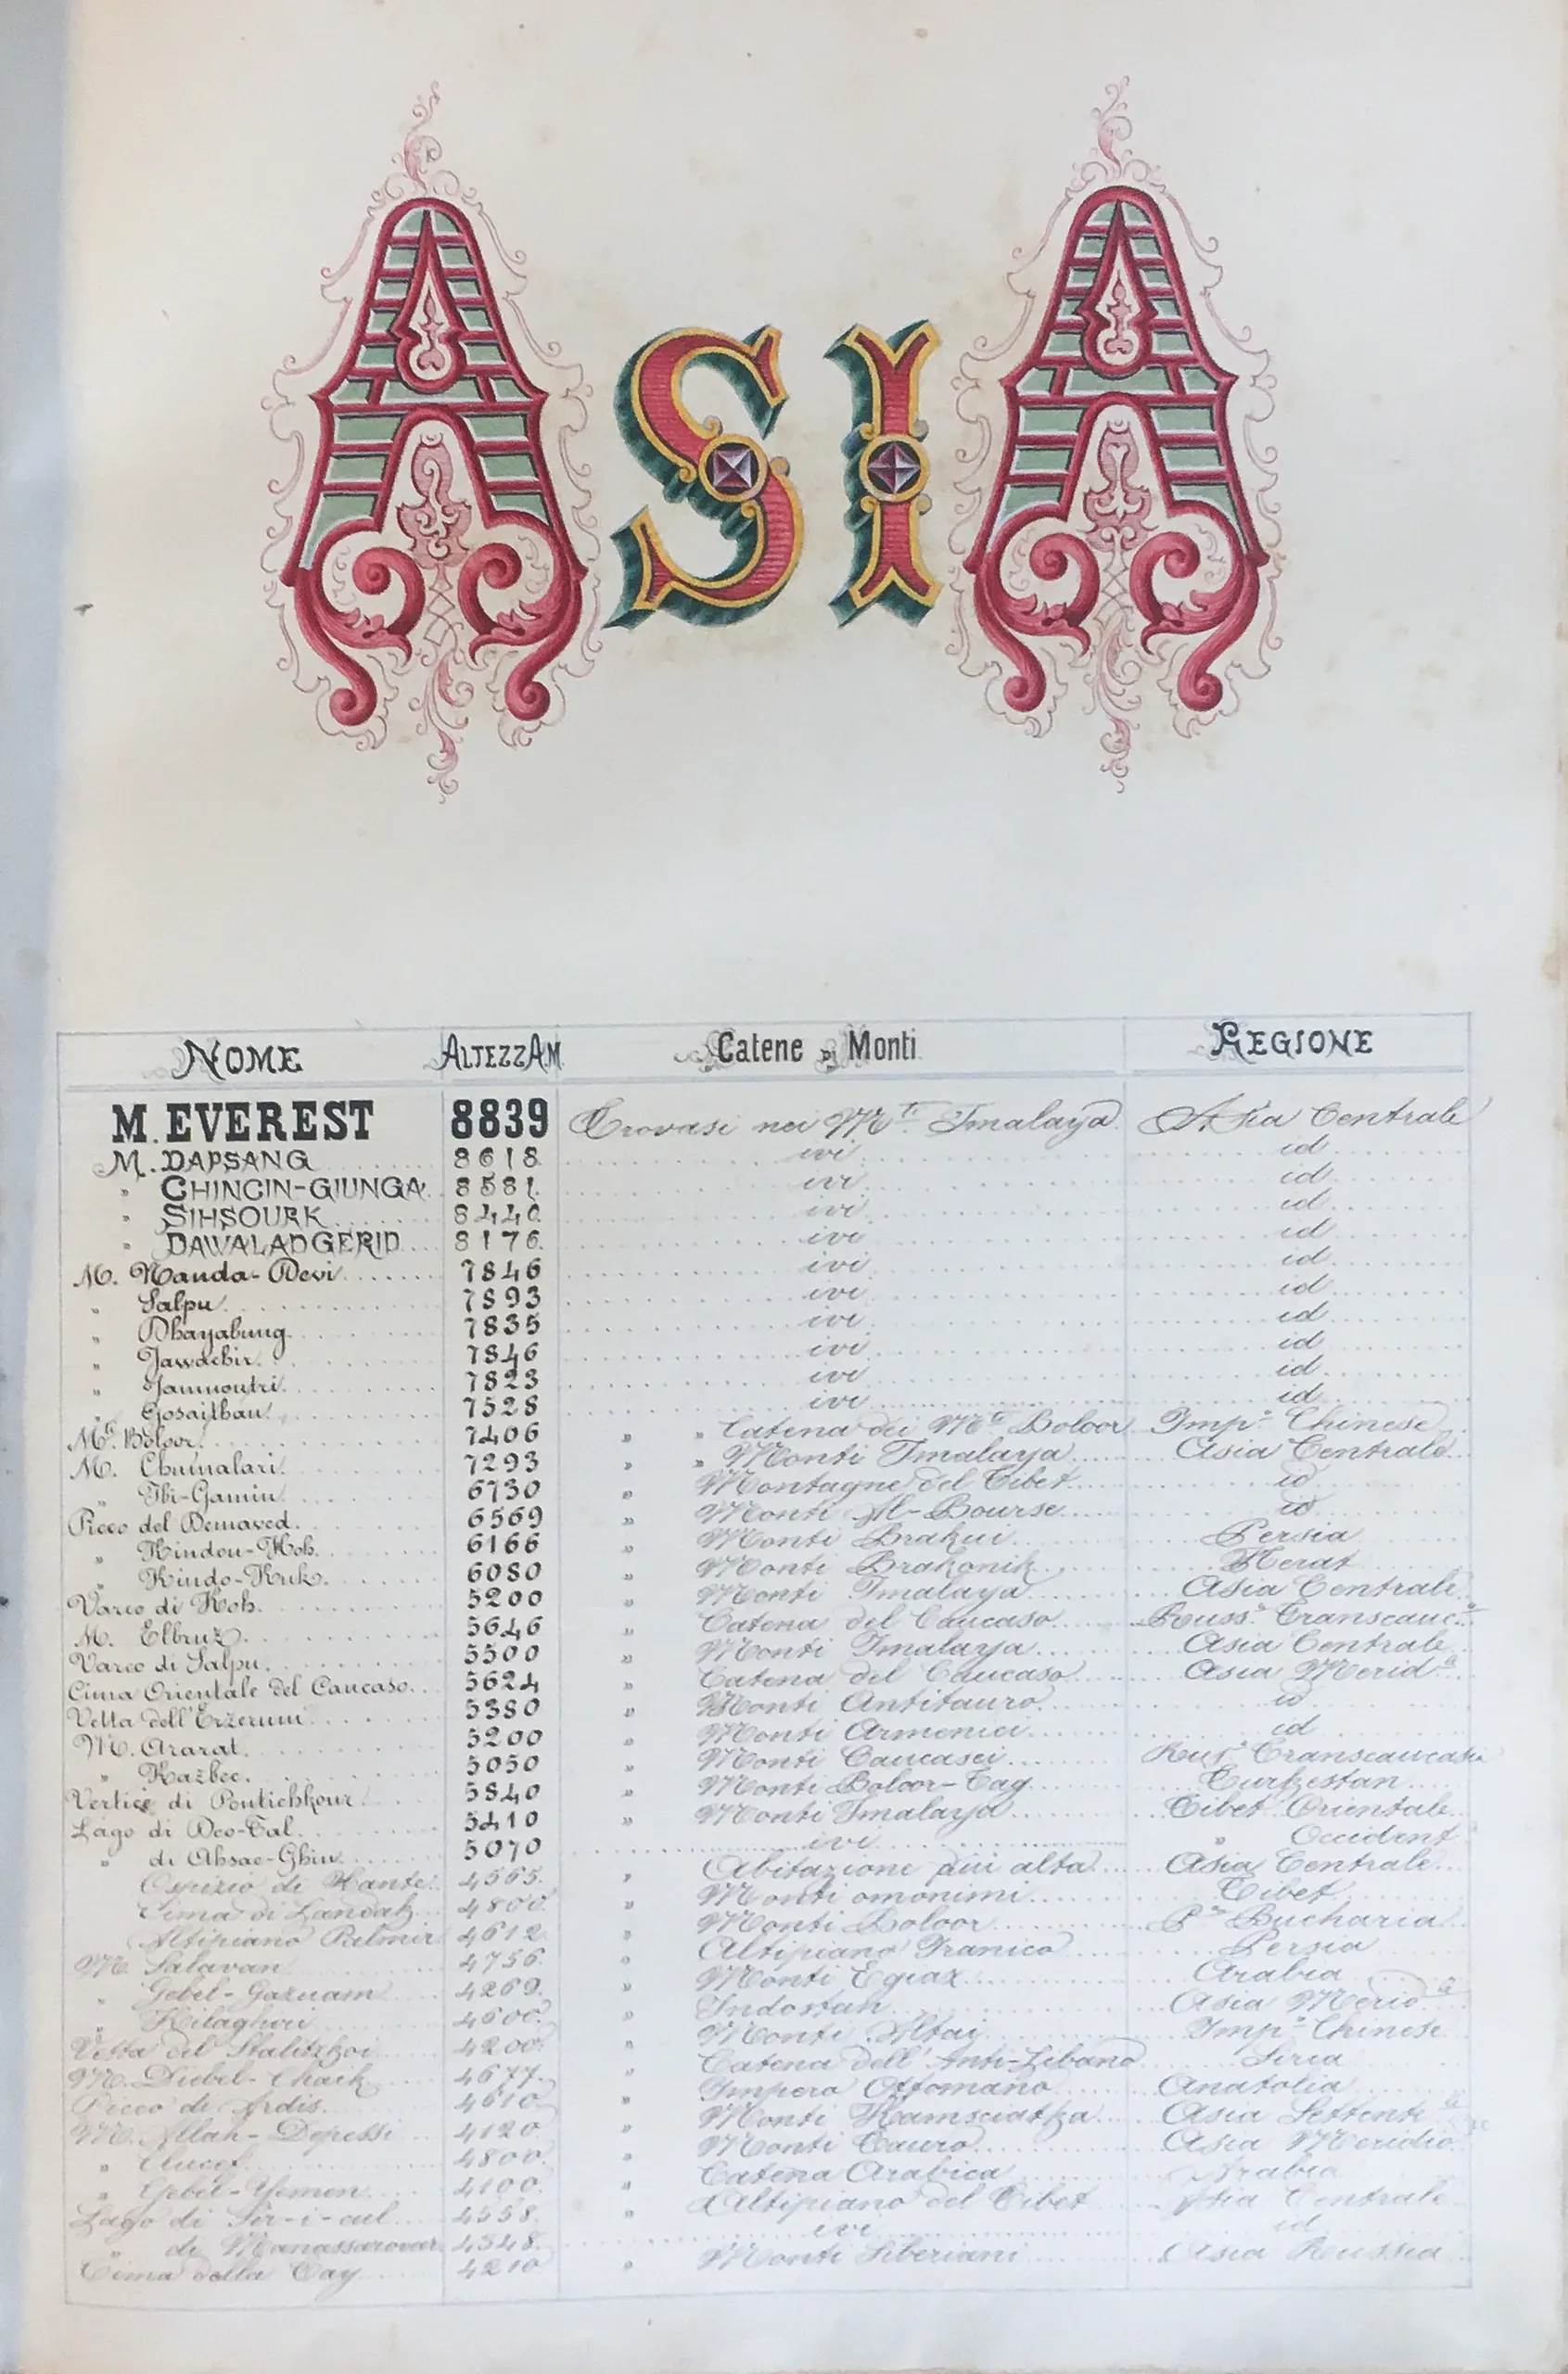 ASIA
NOME ALTEZZA M. Catene DI Monti REGIONE
M. EVEREST 8839 Trovasi nei Mti Imalaya Asia Centrale
M. DAPSANG 8618 ivi id
" CHINCIN-GIUNGA 8581 ivi id
" SIHSOURK 8440 ivi id
" DAWALADGERID 8176 ivi id
M. Nanda-Devi 7846 ivi id
" Salpu 7893 ivi id
" Dhayabung 7835 ivi id
" Jawdchir 7846 ivi id
" Jamnoutri 7823 ivi id
" Gosaithan 7528 ivi id
Mti Boloor 7406 " " Catena dei Mti Boloor Impo Chinese
M. Chumalari 7293 " " Monti Imalaya Asia Centrale
" Ibi-Gamin 6730 " Montagne del Tibet id
Picco del Demaved 6569 " Monti Al-Bourse id
" Hindou-Koh 6166 " Monti Brahui Persia
" Hindo-Kuk 6080 " Monti Brakonik Herat
Varco di Koh 5200 " Monti Imalaya Asia Centrale
M. Elbruz 5646 " Catena del Caucaso Russa Transcauca
Varco di Salpu 5500 " Monti Imalaya Asia Centrale
Cima Orientale del Caucaso 5624 " Catena del Caucaso Asia Merida
Vetta dell'Erzerum 5380 " Monti Antitauro id
M. Ararat 5200 " Monti Armenici id
" Kazbec 5050 " Monti Caucasei Rusa Transcaucasia
Vertice di Pontichkour 5840 " Monti Boloor-Tag Turkestan
Lago di Deo-Tal 5410 " Monti Imalaya Tibet Orientale
" di Ahsae-Ghin 5070 ivi " Occident
Ospizio di Hante 4565 " Abitazione più alta Asia Centrale
Cima di Landak 4800 " Monti omonimi Tibet
Altipiano Palmir 4612 " Monti Boloor Pa Bucharia
M. Salavan 4756 " Altipiano Iranico Persia
" Gebel-Gazuam 4269 " Monti Egiaz Arabia
" Kilaghori 4600 " Indostan Asia Merida
Vetta del Stalitzkoi 4200 " Monti Altai Impo Chinese
M. Diebel-Chaik 4677 " Catena dell'Anti-Libano Siria
Picco di Ardis 4610 " Impero Ottomano Anatolia
M. Allah-Depessi 4120 " Monti Kamsciatka Asia Settente
" 4800 " Monti Tauro Asia Meridio
" Gebel-Yemen 4100 " Catena Arabica Arabia
Lago di Sir-i-cul 4558 " Altipiano del Tibet Asia Centrale
" di Manassarovar 4548 ivi id
Cima della Tay 4210 " Monti Siberiani Asia Russia